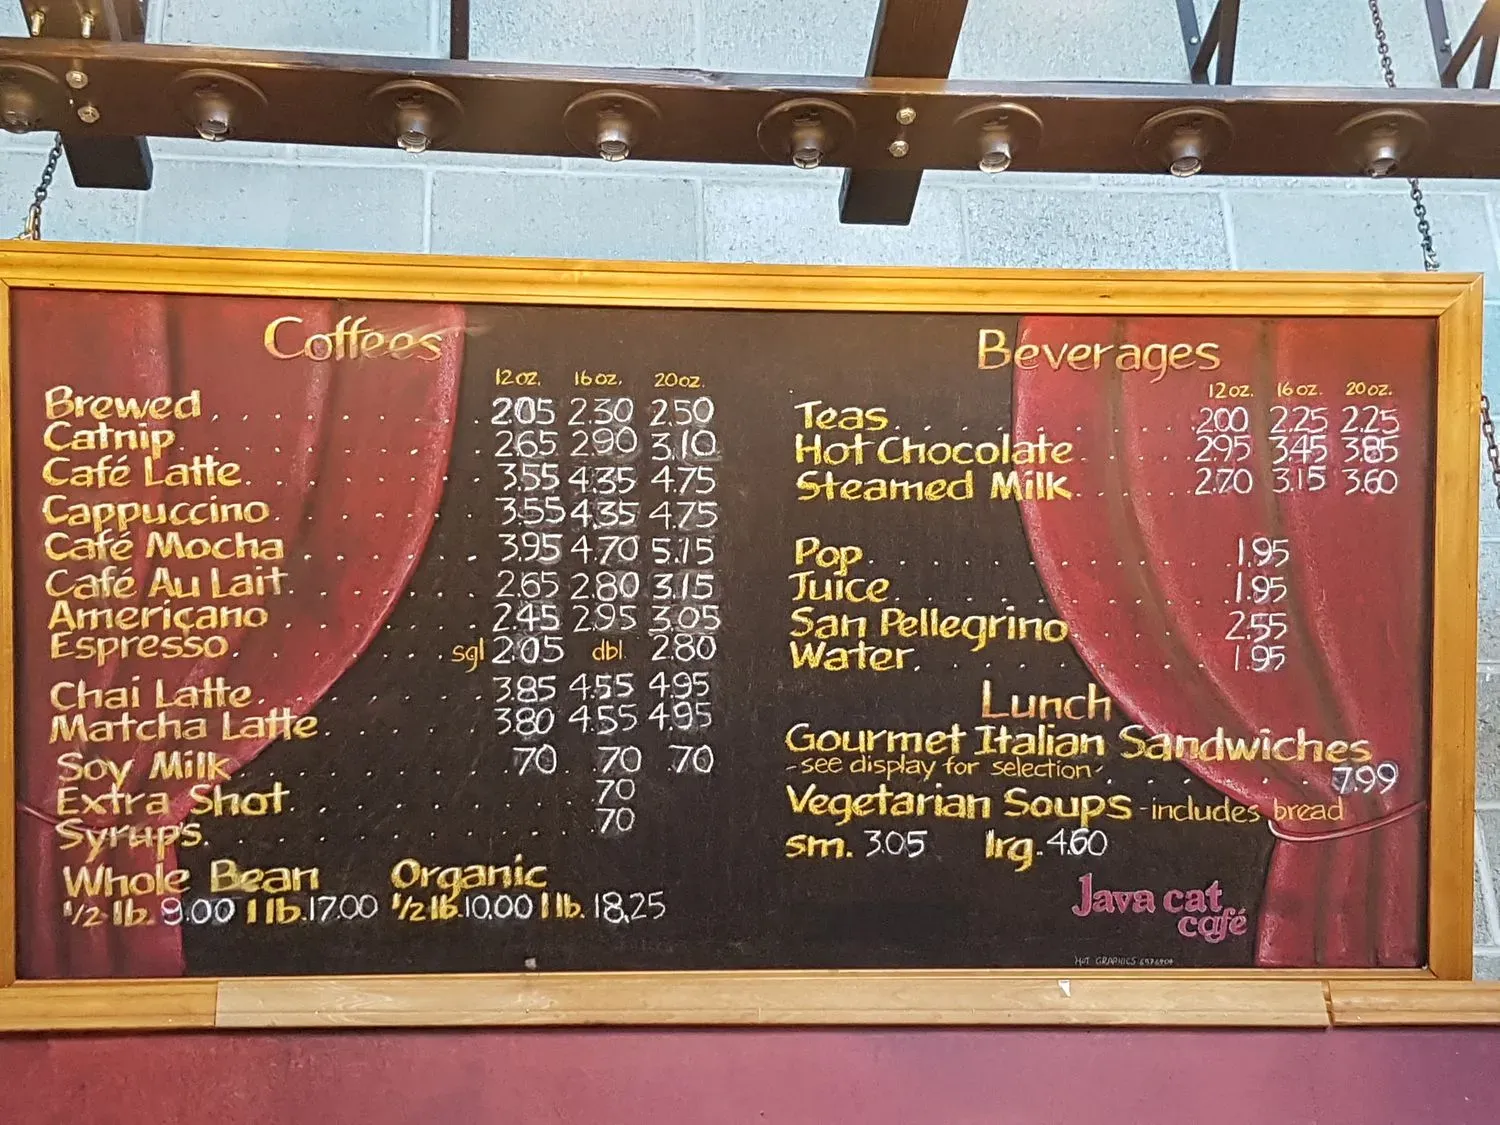 Coffees
12 oz. 16 oz. 20 oz.
Brewed 2.05 2.30 2.50
Catnip 2.65 2.90 3.10
Café Latte 3.55 4.35 4.75
Cappuccino 3.55 4.35 4.75
Café Mocha 3.95 4.70 5.15
Café Au Lait 2.65 2.80 3.15
Americano 2.45 2.95 3.05
Espresso sgl 2.05 dbl 2.80
Chai Latte 3.85 4.55 4.95
Matcha Latte 3.80 4.55 4.95
Soy Milk .70 .70 .70
Extra Shot .70
Syrups .70
Whole Bean Organic
1/2 lb. 9.00 1 lb. 17.00 1/2 lb. 10.00 1 lb. 18.25
Beverages
12 oz. 16 oz. 20 oz.
Teas 2.00 2.25 2.25
Hot Chocolate 2.95 3.45 3.85
Steamed Milk 2.70 3.15 3.60
Pop 1.95
Juice 1.95
San Pellegrino 2.55
Water 1.95
Lunch
Gourmet Italian Sandwiches
-see display for selection- 7.99
Vegetarian Soups -includes bread
sm. 3.05 lrg. 4.60
Java cat
café
HOT GRAPHICS